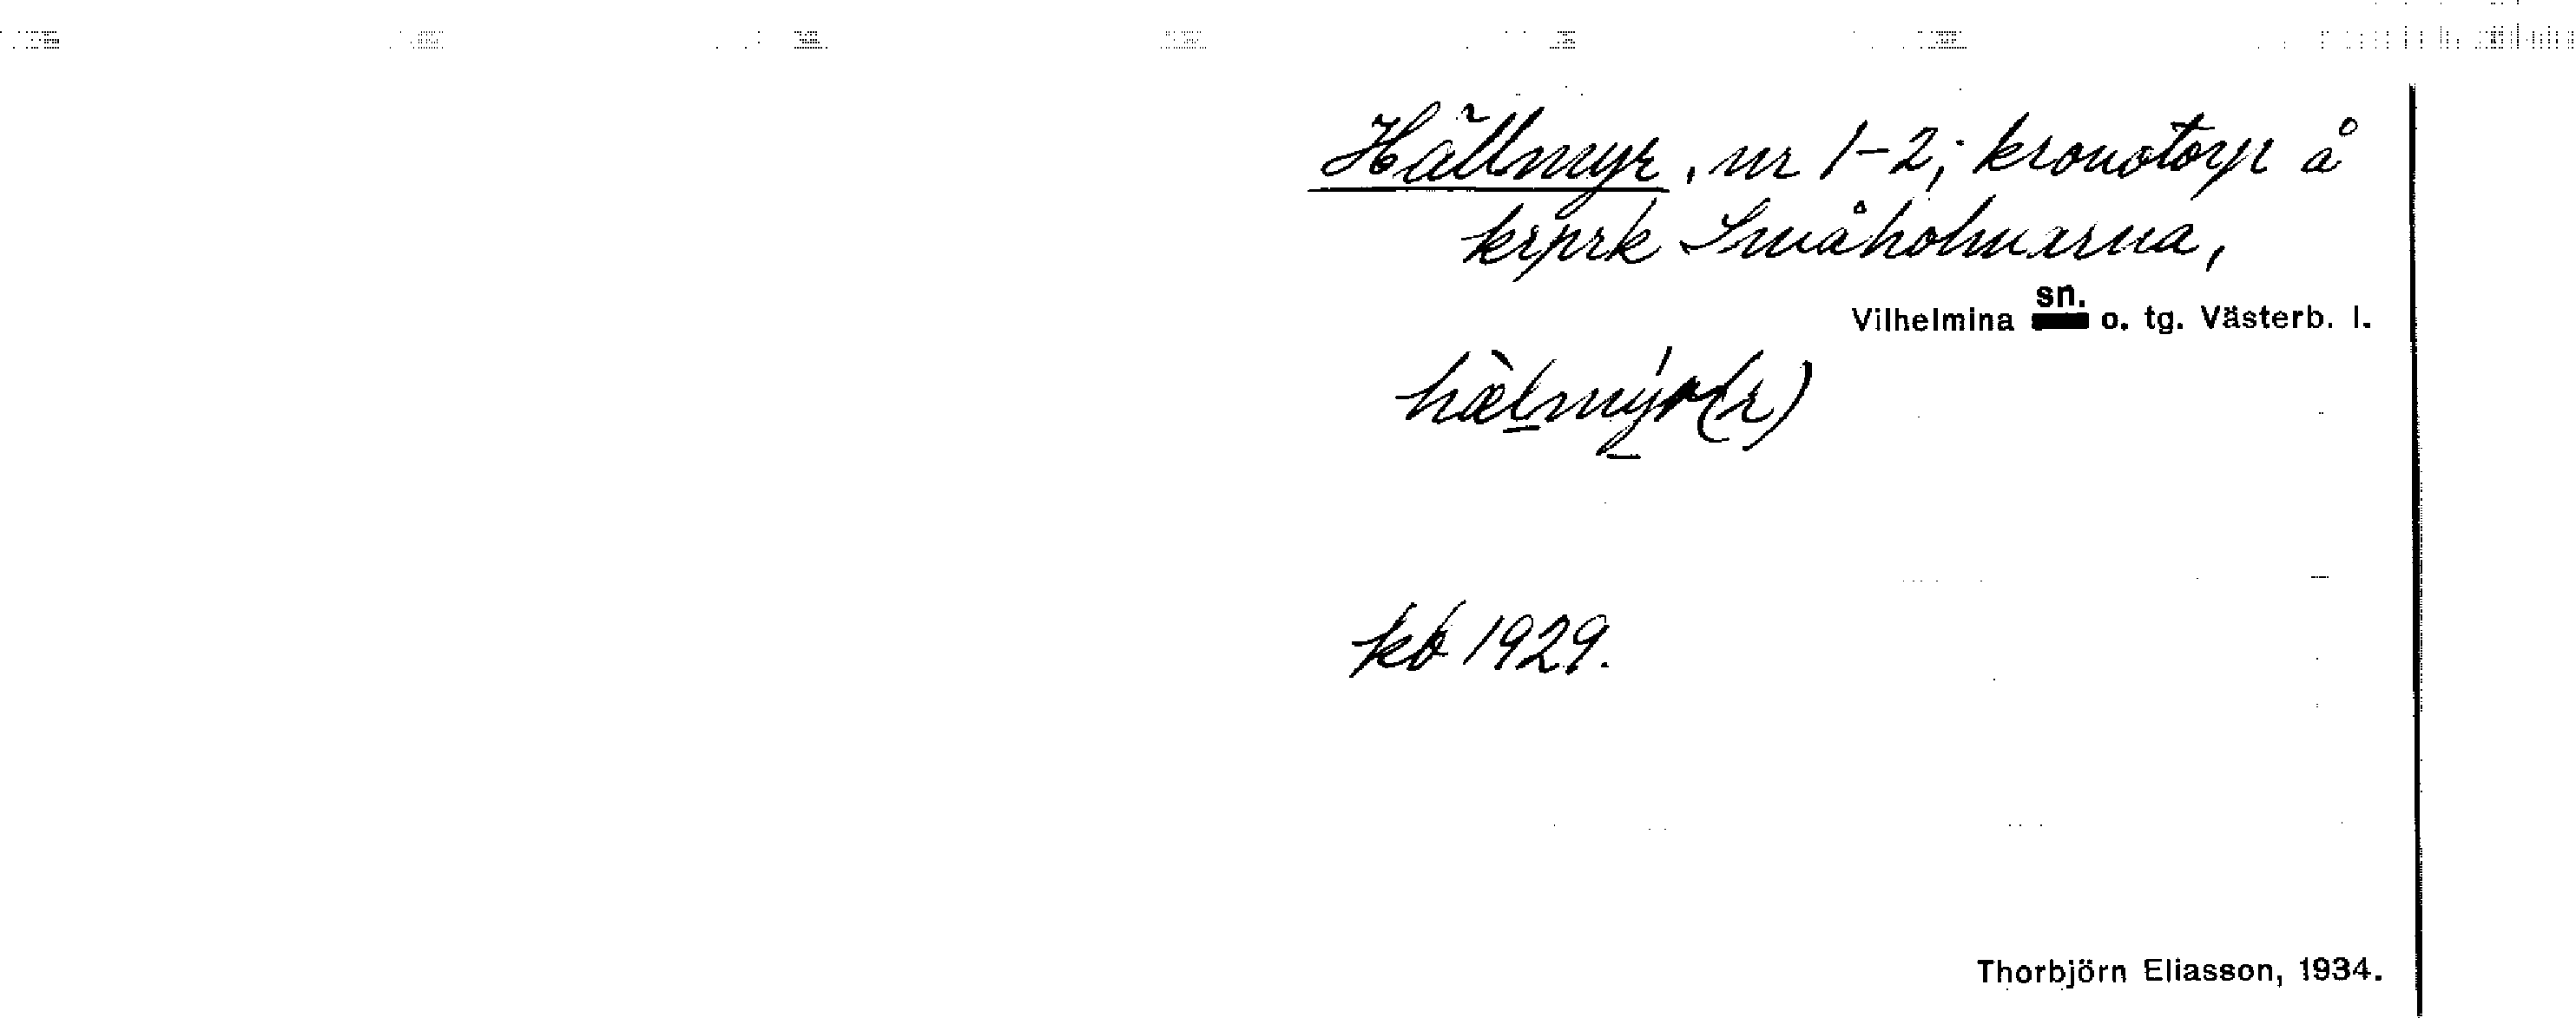 Hällmyr, nr 1-2; kronotorp å
krprk Småholmarna,
Vilhelmina sn. o. tg. Västerb. l.
hælmýr(r)
kb 1929.
Thorbjörn Eliasson, 1934.